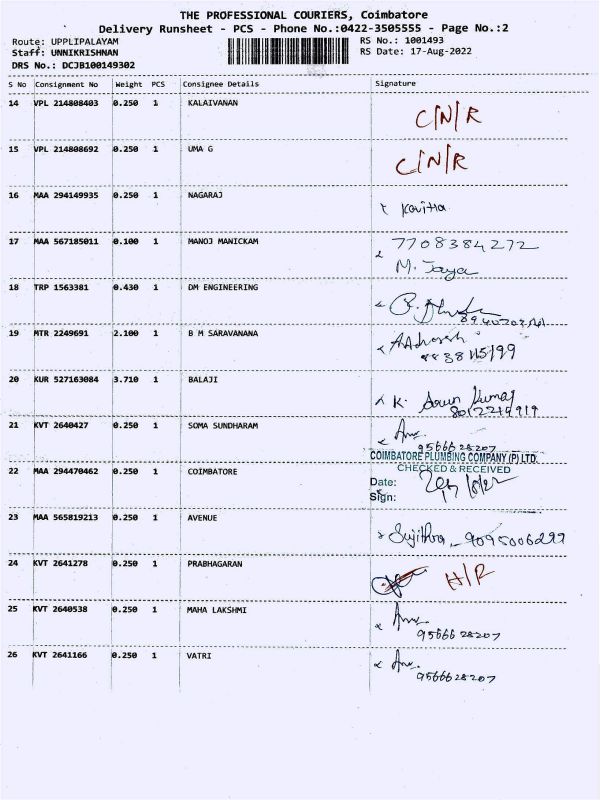 THE PROFESSIONAL COURIERS, Coimbatore
Delivery Runsheet - PCS - Phone No.:0422-3505555 - Page No.:2
Route: UPPLIPALAYAM
Staff: UNNIKRISHNAN
DRS No.: DCJB100149302
RS No.: 1001493
RS Date: 17-Aug-2022
S No Consignment No Weight PCS Consignee Details Signature
14 VPL 214808403 0.250 1 KALAIVANAN C/N/R
15 VPL 214808692 0.250 1 UMA G C/N/R
16 MAA 294149935 0.250 1 NAGARAJ Kavitha
17 MAA 567185011 0.100 1 MANOJ MANICKAM 7708384272
M. Jaya
18 TRP 1563381 0.430 1 DM ENGINEERING
19 MTR 2249691 2.100 1 B M SARAVANANA
20 KUR 527163084 3.710 1 BALAJI K. Arun Kumar
21 KVT 2640427 0.250 1 SOMA SUNDHARAM
9566628207
COIMBATORE PLUMBING COMPANY (P) LTD.
CHECKED & RECEIVED
22 MAA 294470462 0.250 1 COIMBATORE
Date:
Sign:
23 MAA 565819213 0.250 1 AVENUE Sujithra 9095006299
24 KVT 2641278 0.250 1 PRABHAGARAN H/R
25 KVT 2640538 0.250 1 MAHA LAKSHMI
9566628207
26 KVT 2641166 0.250 1 VATRI
9566628207